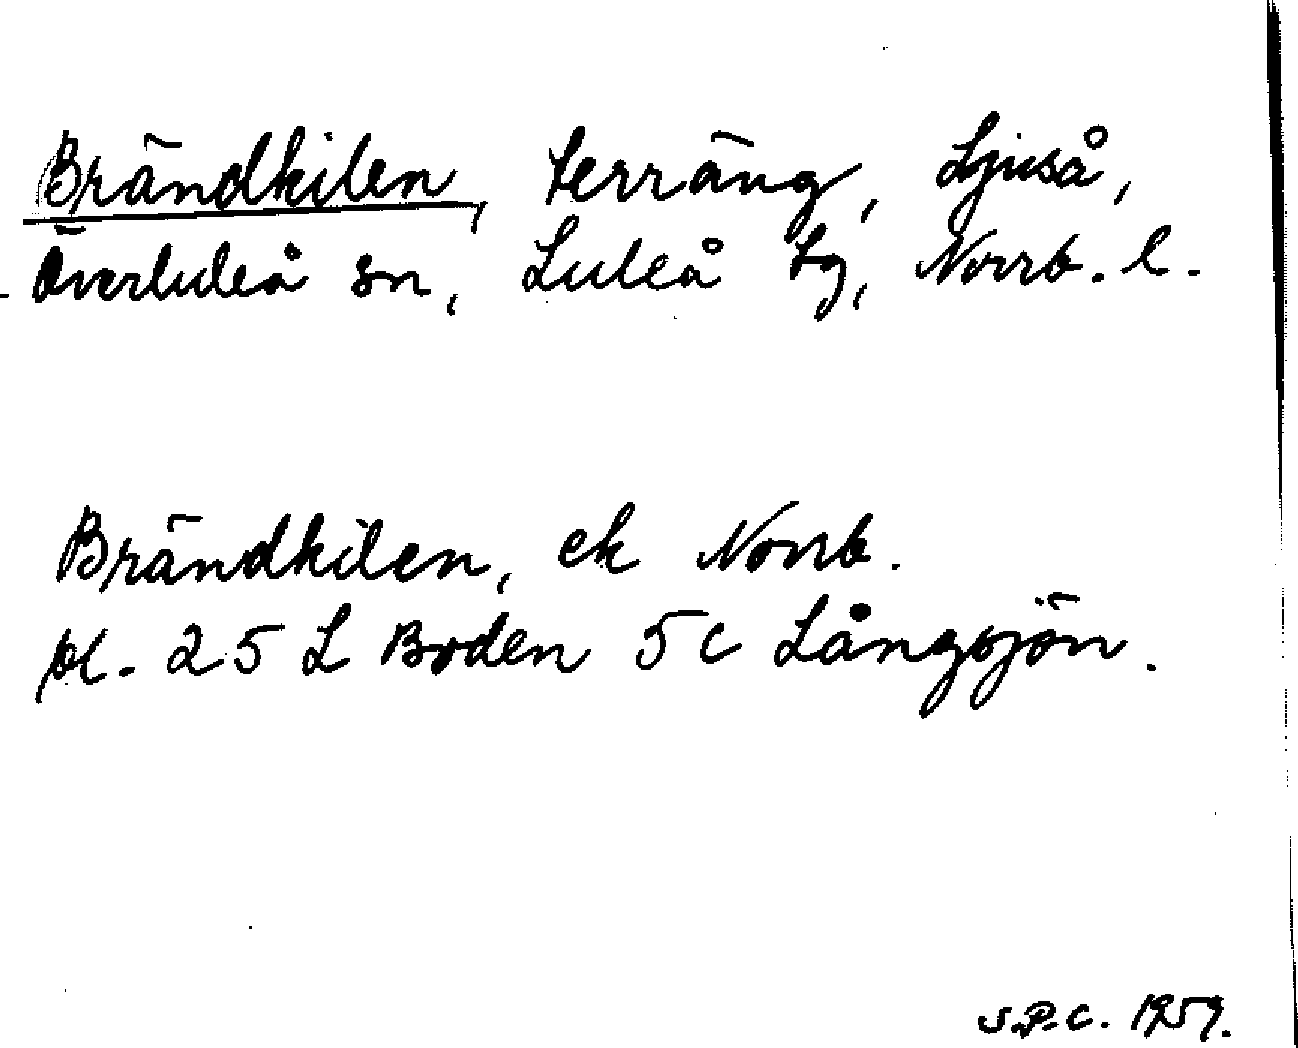 Brändkilen, terräng, Ljuså,
Överluleå sn, Luleå tg, Norrb. l.
Brändkilen, ek Norrb.
bl. 25 L Boden 5 c Långsjön.
S.P.C. 1959.